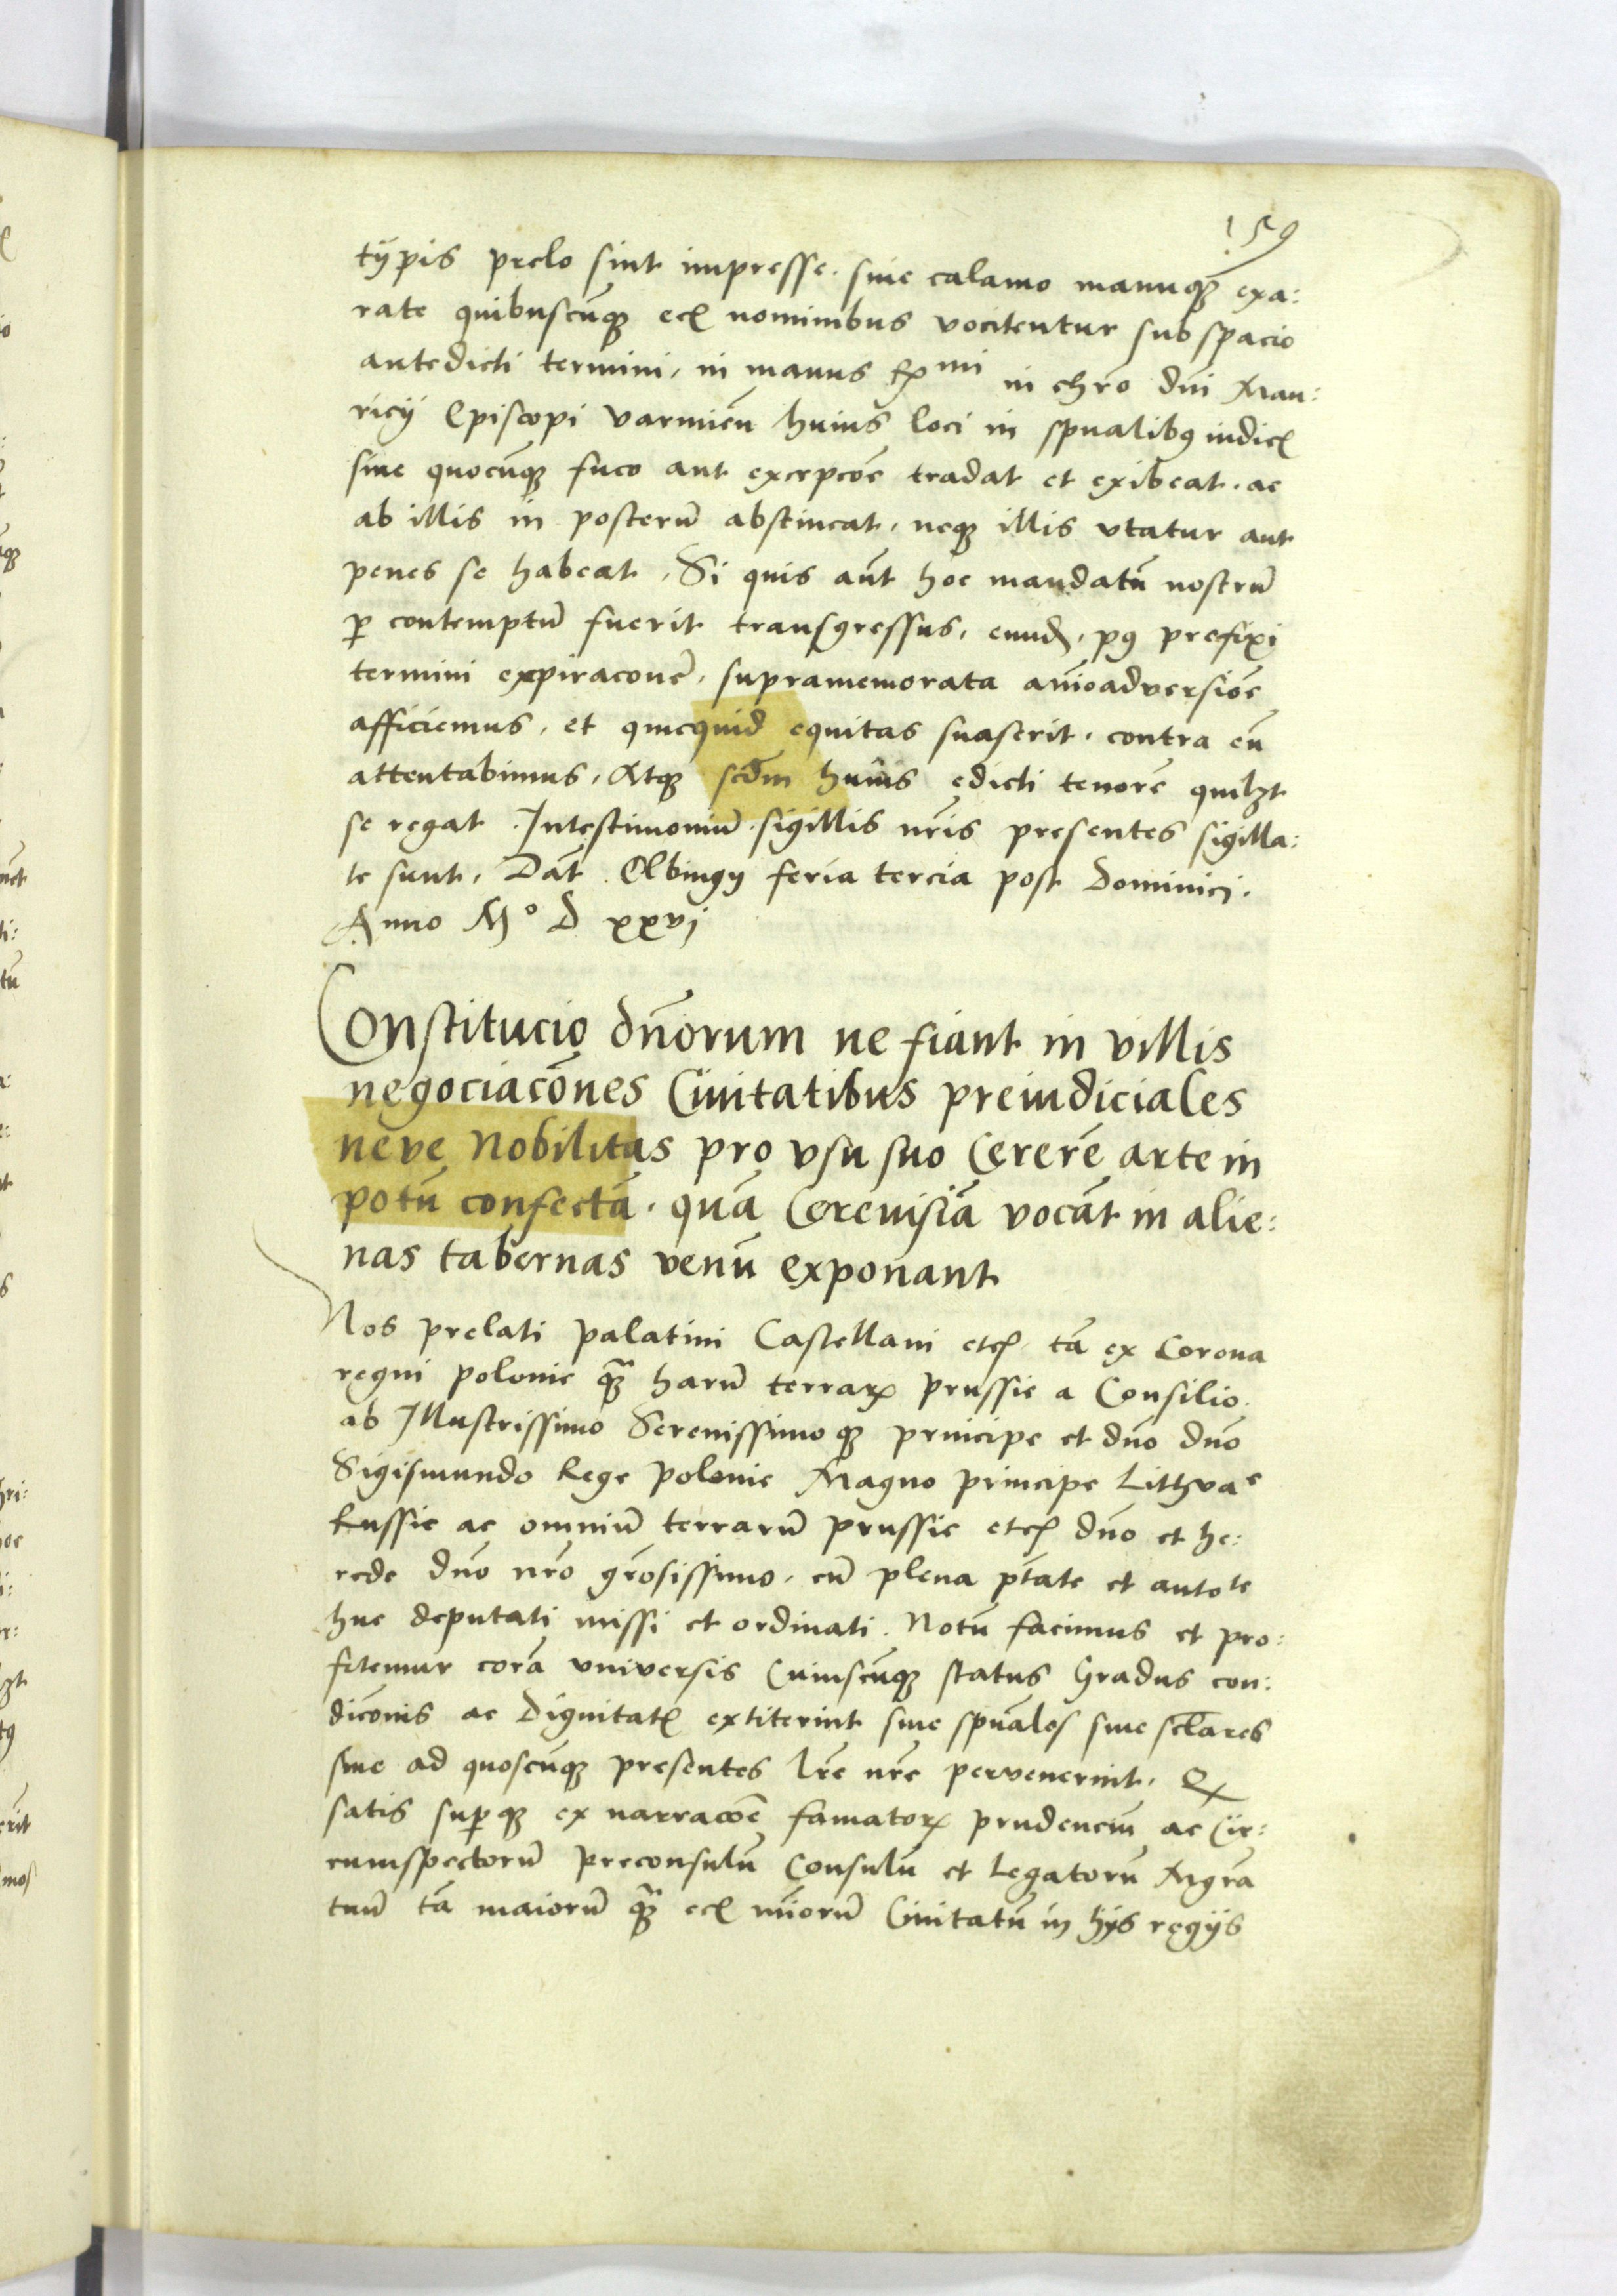 159
tÿpis prelo sint impresse. siue calamo manuqꝫ exa:
rate quibuscūqꝫ ecꝭ nominibus vocitentur sub spacio
antedicti termini, in manus Rᵐⁱ in chr̄o dn̄i Mau:
ricÿ Episcopi varmien̄ huius loci in spualibꝯ iudicꝭ
sine quocūqꝫ fuco aut excepcōe tradat et exibeat. ac
ab illis in posterū abstineat, neqꝫ illis vtatur aut
penes se habeat. Si quis aūt hoc mandatū nostrū
ꝑ contemptū fuerit transgressus, eund, pꝯ prefixi
termini expiraconē, supramemorata aīoadversiōe
afficiemus, et quicquid equitas suaserit, contra eū
attentabimus, Atqꝫ scdm̄ huius edicti tenorē quilꝫt
se regat. In testimoniū sigillis nr̄is presentes sigilla:
te sunt, Dat̄. Elbingÿ feria tercia post Dominici.
Anno Mº D xxvj
Constitucio dn̄orum ne fiant in villis
negociacōnes Ciuitatibus preiudiciales
neve Nobilitas pro vsu suo Cererē arte in
potū confectā. quā Cereuisiā vocāt in alie:
nas tabernas venū exponant
Nos prelati palatini Castellani etcꝭ tā ex Corona
regni polonie qꝫ̄ harū terrarꝝ prussie a Consilio.
ab Illustrissimo Serenissimoqꝫ principe et dn̄o dn̄o
Sigismundo Rege polonie Magno principe Littvae
Russie ac omniū terrarū prussie etcꝭ dn̄o et he:
rede dn̄o nr̄o grōsissimo, cū plena ptāte et autoᵗᵉ
huc deputati missi et ordinati. Notū facimus et pro:
fitemur corā vniversis Cuiuscūqꝫ status Gradus con:
diconis ac Dignitatꝭ extiterint siue spuāles siue sclares
siue ad quoscūqꝫ presentes lr̄e nr̄e pervenerint, Qꝫ
satis suꝑqꝫ ex narracōe famatorꝝ prudenciū ac Cir:
cumspectorū preconsulū Consulū et Legatorū Mgrā
tuū tā maiorū qꝫ̄ ecꝭ miōrū Ciuitatū in hÿs regÿs